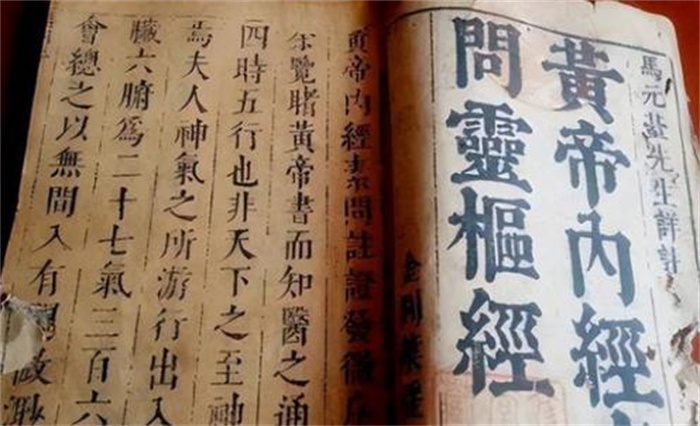 馬元臺先生詳註
黃帝內經
問靈樞經
黃帝內經素問註證發微序
余覽睹黃帝書而知醫之通
四時五行也非天下之至神
焉夫人神氣之所游行出入
臟六腑爲二十七氣三百六
會總之以無間入有